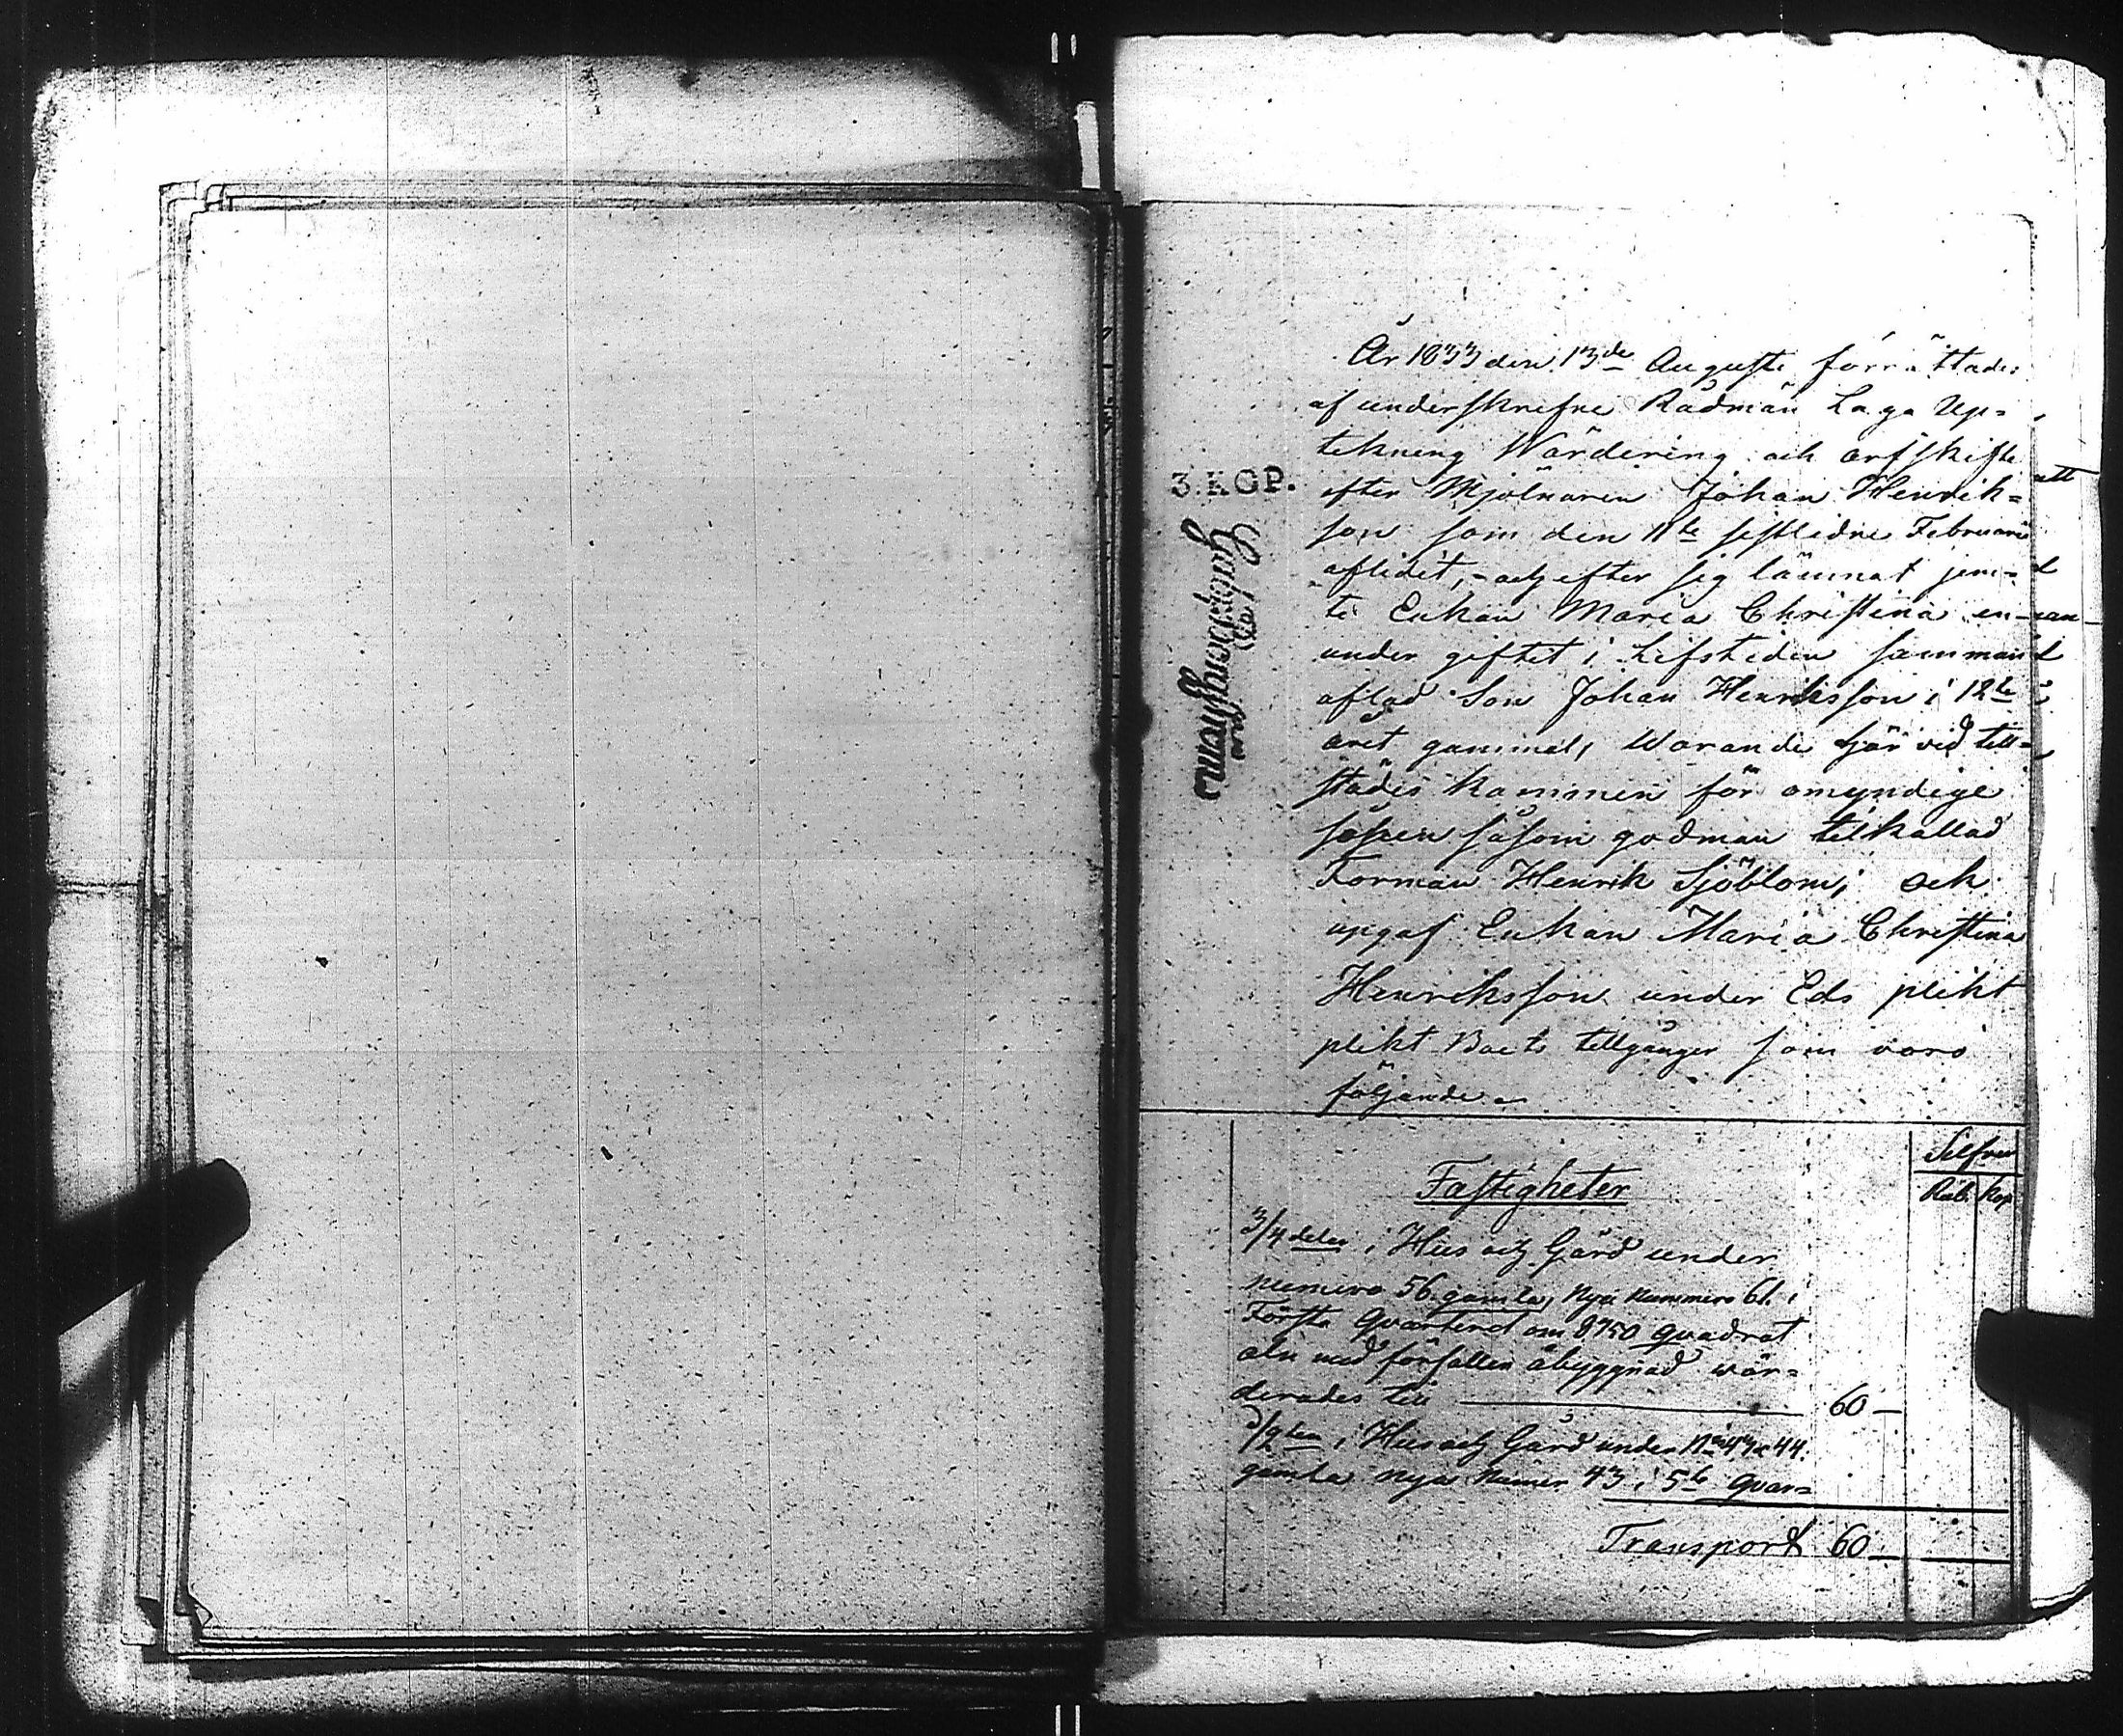 År 1833 den 13de Augusti förrättades
af underskrefne Rådmän Laga Up=
tekning Wärdering och arfskifte
3. KOP.
efter Mjölnaren Johan Henrik=
son som den 11te sistledne Februarii
aflidit, och efter sig lämnat jem=
te Enkan Maria Christina en
under giftet i Lifstiden samman
aflad Son Johan Henriksson i 12te
året gammal, Warande här vid till=
städes kommen för omyndige
sonen såsom godman tilkallad
Forman Henrik Sjöblom; och
upgaf Enkan Maria Christina
Henriksson under Eds plikt
plikt Boets tillgånger som voro
följande
Silfver
Rub. Kop
Fastigheter
3/4 delar i Hus och Gård under
numero 56 gamla, Nya nummero 61. i
Första Qvarteret om 8750 quadrat
aln med förfallen åbyggnad wär=
derades till 60 —
1/2 ten i Hus och Gård under No 43 & 44.
gamla nya numer 43 i 5te Qvar=
Transport 60 —